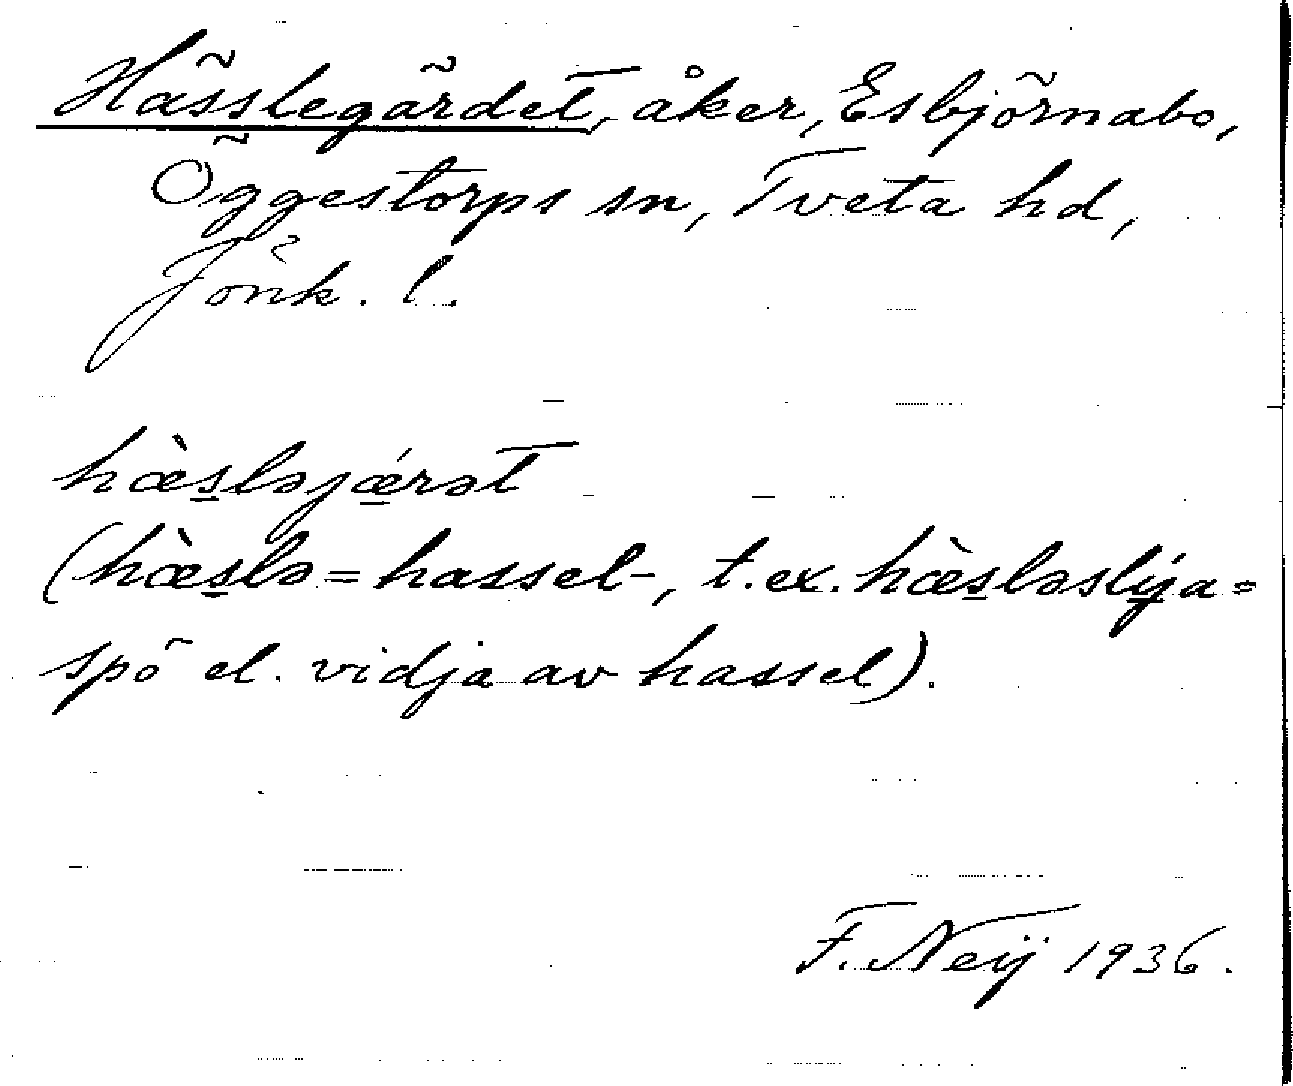 Hässlegärdet, åker, Esbjörnabo,
Öggestorps sn, Tveta hd,
Jönk. l.
hæ̀s̲ləjǽ̲rət
(hæ̀s̲lə=hassel-, t.ex. hæ̀s̲ləsly̲ja=
spö el. vidja av hassel).
F. Neij 1936.